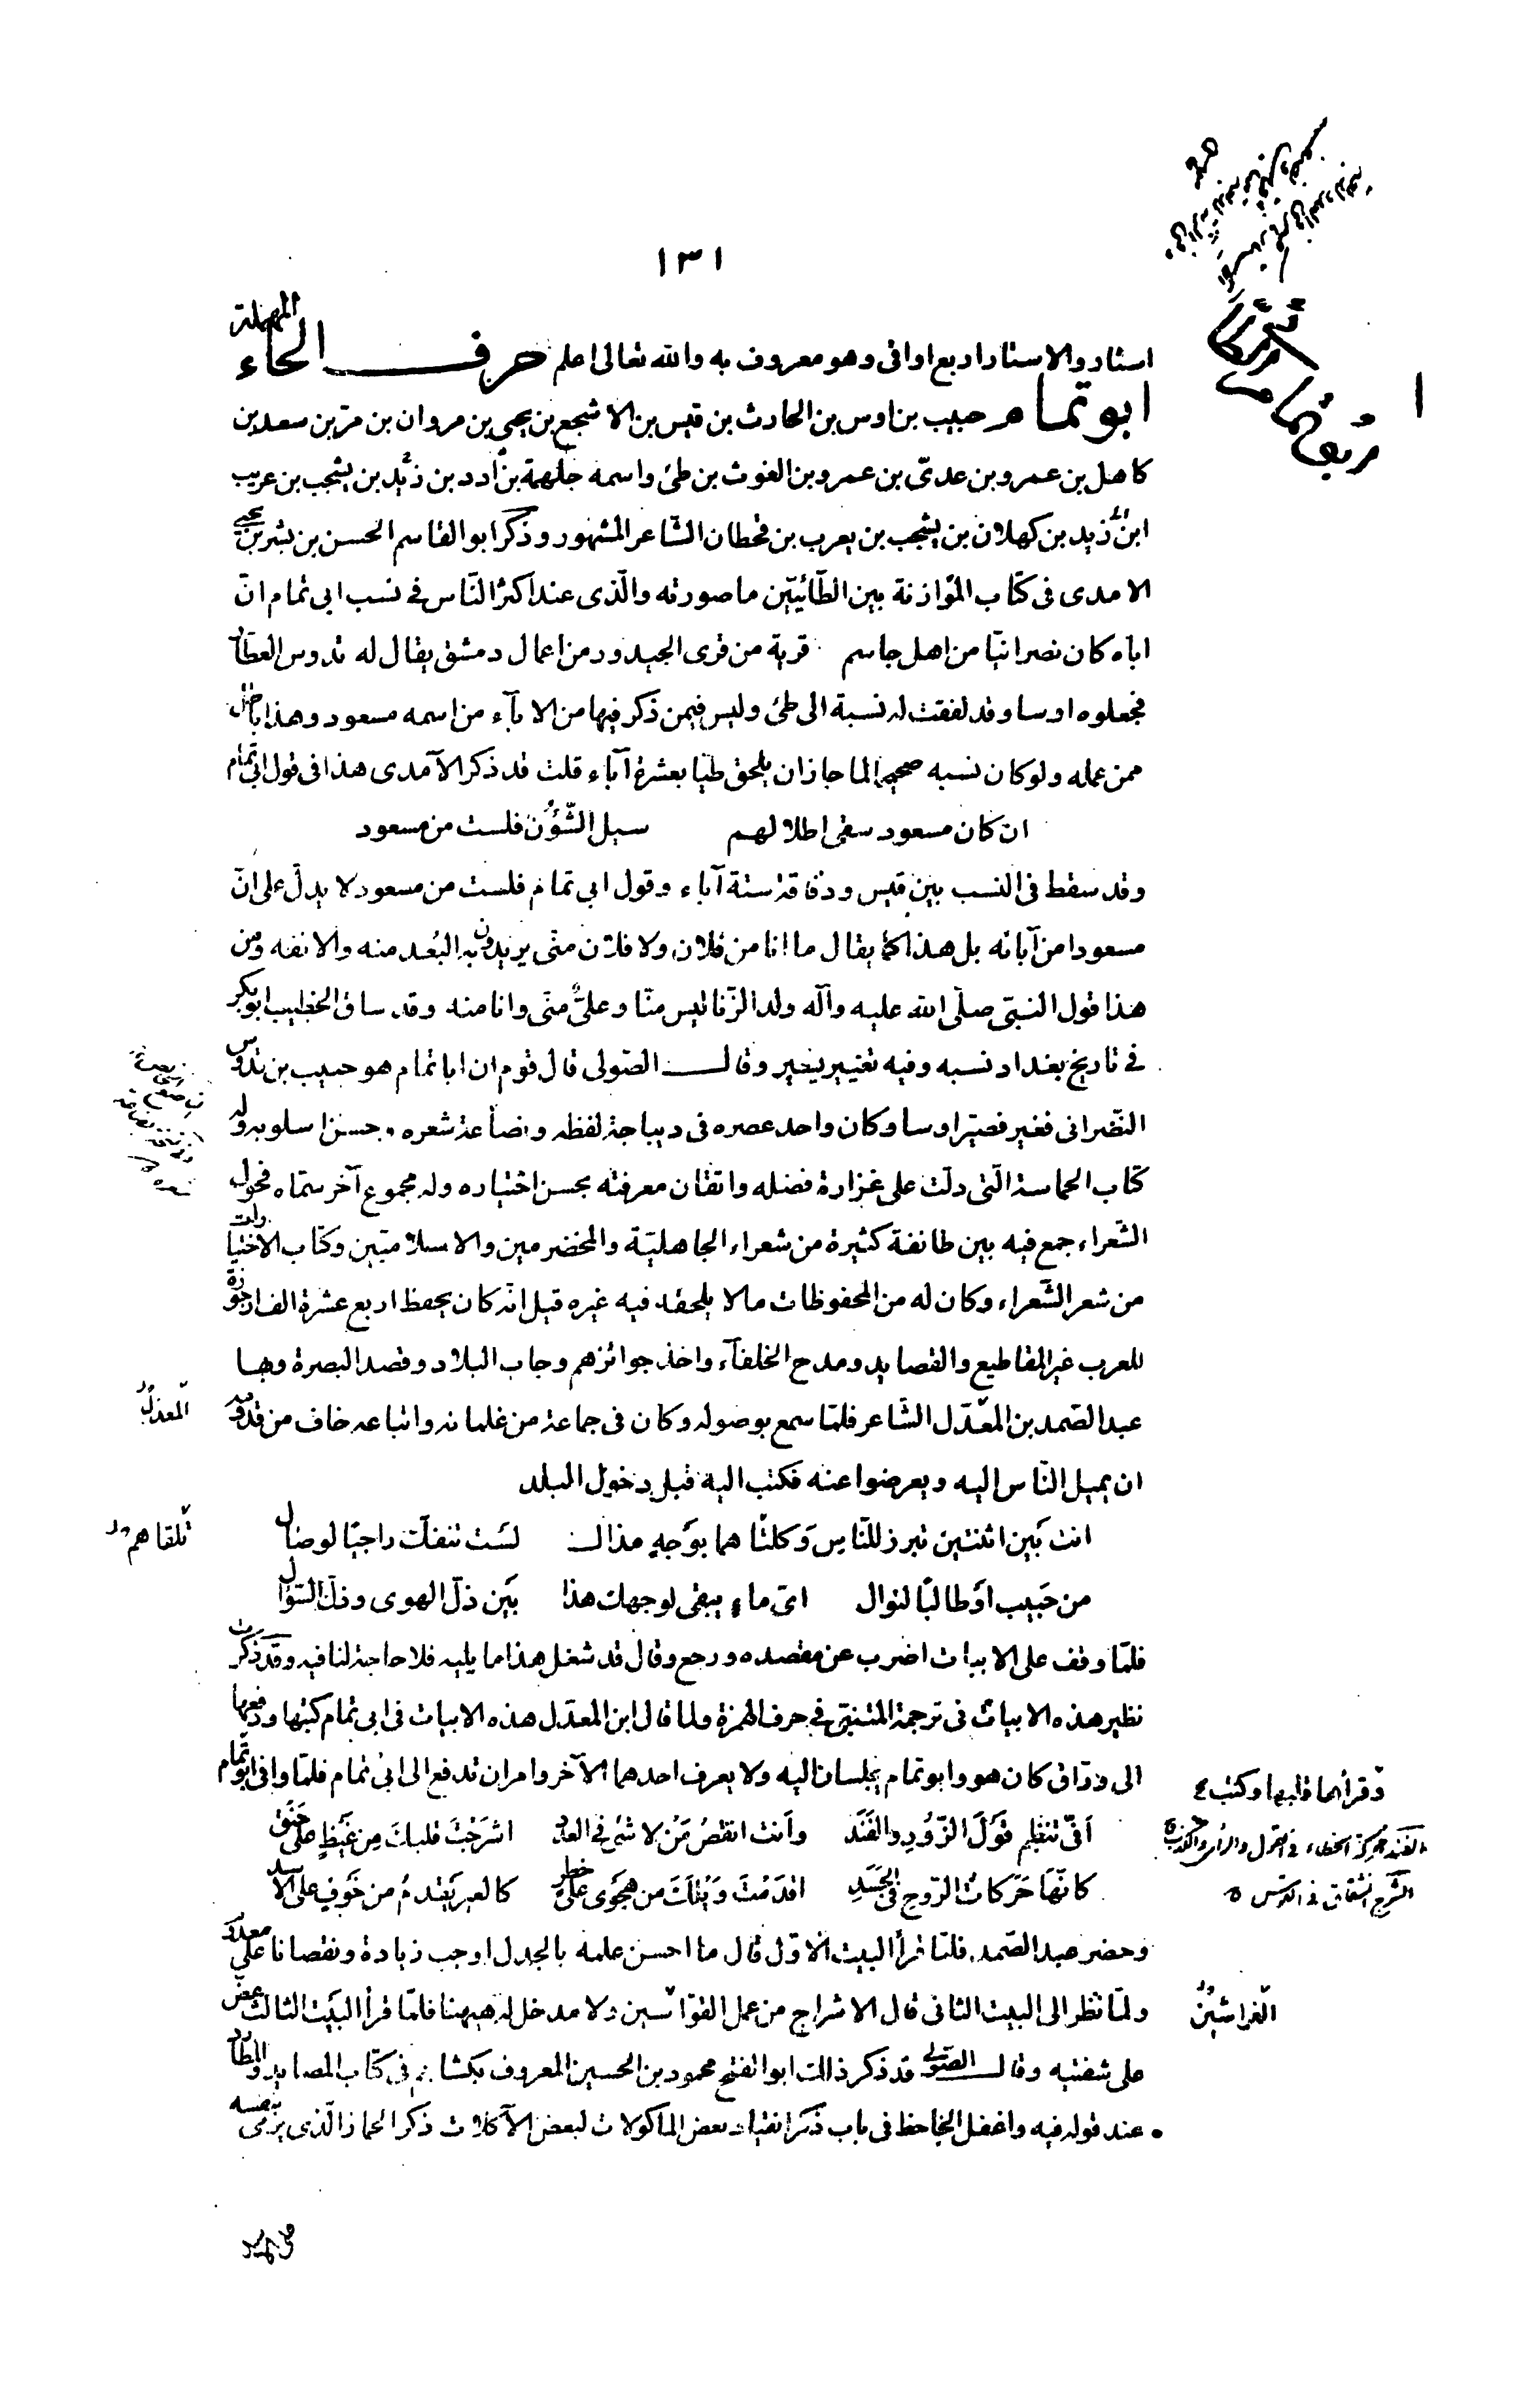 ١٣١
استاد والاستاد اربع اواقى وهو معروف به والله تعالى اعلم حرف الحاء المهملة
ابو تمام حبيب بن اوس بن الحارث بن قيس بن الاشجع بن يحيى بن مروان بن مرّ بن سعد بن
كاهل بن عمرو بن عدىّ بن عمرو بن الغوث بن طئ واسمه جلهمة بن أدد بن زيد بن يشجب بن عريب
ابن زيد بن كهلان بن يشجب بن يعرب بن قحطان الشّاعر المشهور وذكر ابو القاسم الحسن بن بشر بن يحيى
الامدى فى كتاب الموازنة بين الطّائيّين ما صورته والّذى عند اكثر النّاس فى نسب ابى تمام انّ
اباه كان نصرانيّا من اهل جاسم قرية من قرى الجيدور من اعمال دمشق يقال له تدوس العطّار
فجعلوه اوسا وقد لفقت له نسبة الى طئ وليس فيمن ذكر فيها من الابآء من اسمه مسعود وهذا باطل
ممن عمله ولو كان نسبه صحيحا لما جاز ان يلحق طيّا بعشرة آباء قلت قد ذكر الآمدى هذا فى قول ابى تمام
ان كان مسعود سقى اطلالهم سبل الشّؤن فلست من مسعود
وقد سقط فى النسب بين قيس ودفاقة ستة آباء وقول ابى تمام فلست من مسعود لا يدلّ على انّ
مسعودا من آبائه بل هذا كما يقال ما انا من فلان ولا فلان منّى يريدون به البُعد منه والانفه ومن
هذا قول النبىّ صلّى الله عليه وآله ولد الزّنا ليس منّا وعلىٌّ منّى وانا منه وقد ساق الخطيب ابو بكر
فى تاريخ بغداد نسبه وفيه تغيير يسير وقال الصّولى قال قوم ان ابا تمام هو حبيب بن تدوس
النّصرانى فغير فصيّر اوسا وكان واحد عصره فى ديباجة لفظه ونصاعة شعره وحسن اسلوبه وله
كتاب الحماسة الّتى دلّت على غزارة فضله واتقان معرفته بحسن اختياره وله مجموع آخر سمّاه فحول
الشّعراء جمع فيه بين طائفة كثيرة من شعراء الجاهليّة والمخضرمين والاسلاميّين وكتاب الاختيارات
من شعر الشّعراء وكان له من المحفوظات ما لا يلحقه فيه غيره قيل انّه كان يحفظ اربع عشرة الف ارجوزة
للعرب غير المقاطيع والقصايد ومدح الخلفآء واخذ جوائزهم وجاب البلاد وقصد البصرة وبها
عبد الصّمد بن المعّدّل الشّاعر فلمّا سمع بوصوله وكان فى جماعة من غلمانه واتباعه خاف من قدومه
المعذّل
ان يميل النّاس اليه ويعرضوا عنه فكتب اليه قبل دخول البلد
انت بَين اثنتين تبرز للنّاس وكلتاهما بوَجهِ مذال لست تنفكّ راجيًا لوصال
تلقاهم
من حَبيب اوَ طالبًا لنوال اىّ ماء يبقى لوجهك هذا بَين ذلّ الهوى وذلّ السّؤال
فلمّا وقف على الابيات اضرب عن مقصده ورجع وقال قد شغل هذا ما يليه فلا حاجة لنا فيه وقد ذكرت
نظير هذه الابيات فى ترجمة المتنبّى فى حرف الهمزة ولما قال ابن المعدّل هذه الابيات فى ابى تمام كتبها ودفعها
الى ورّاق كان هو وابو تمام يجلسان اليه ولا يعرف احدهما الآخر وامر ان تدفع الى ابى تمام فلمّا وافى ابو تمام
وقرأها قلبها وكتب
أفىّ تنظم قوَلَ الزّورِ والفَنَد وأنت انقصُ مِن لا شئ فى العدد اشرَجْتَ قلبك مِن غَيظٍ على حَنَق
كانّها حَرَكاتُ الرّوحِ فى الجَسَدِ اقدَمْتَ وَيْلَكَ من هَجوى على خطر كالعير يَقدمُ من خَوفٍ على الاسد
وحضر عبد الصّمد فلمّا قرأ البيت الاوّل قال ما احسن علمه بالجدل اوجب زيادة ونقصانا على معدوم
ولمّا نظر الى البيت الثانى قال الاشراج من عمل القوّاسين ولا مدخل له هيهنا فلمّا قرأ البَيت الثالث عضّ
الفراشين
على شفتيه وقال الصّولى قد ذكر ذالك ابو الفتح محمود بن الحسين المعروف بكشاجم فى كتاب المصايد والمطارد
عند قوله فيه واغفل الجاحظ فى باب ذكر انقياد بعض المأكولات لبعض الآكلات ذكر الحمار الّذى يرمى بنفسه